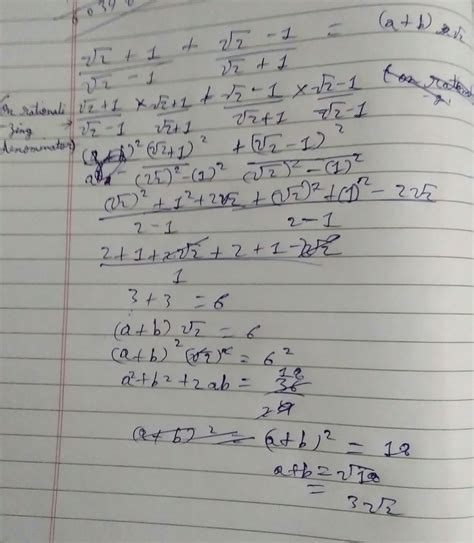 √2 + 1 / √2 - 1 + √2 - 1 / √2 + 1 = (a+b) √2
On rationalizing denominator → √2+1 / √2-1 × √2+1 / √2+1 + √2-1 / √2+1 × √2-1 / √2-1
(√2+1)² / (√2)²-(1)² + (√2-1)² / (√2)²-(1)²
(√2)² + 1² + 2√2 / 2-1 + (√2)² + (1)² - 2√2 / 2-1
2+1+2√2 + 2+1-2√2 / 1
3+3 = 6
(a+b) √2 = 6
(a+b)² (√2)² = 6²
a²+b²+2ab = 36 / 2 18
(a+b)² = (a+b)² = 18
a+b = √18
= 3√2